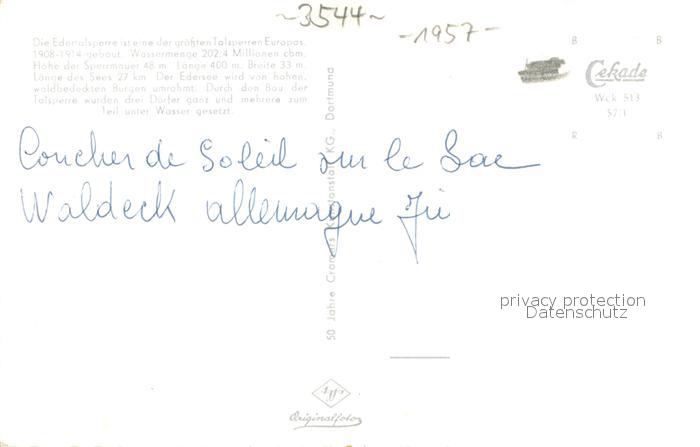 ~3544~
-1957-
Die Edertalsperre ist eine der größten Talsperren Europas.
1908-1914 gebaut. Wassermenge 202,4 Millionen cbm,
Höhe der Sperrmauer 48 m Länge 400 m, Breite 33 m.
Länge des Sees 27 km Der Edersee wird von hohen,
waldbedeckten Burgen umrahmt. Durch den Bau der
Talsperre wurden drei Dörfer ganz und mehrere zum
Teil unter Wasser gesetzt.
B B
Cekade
Wck 513
57/1
R B
Coucher de Soleil sur le Lac
Waldeck allemagne
50 Jahre Cramers Kunstanstalt KG., Dortmund
privacy protection
Datenschutz
Agfa
Originalfoto